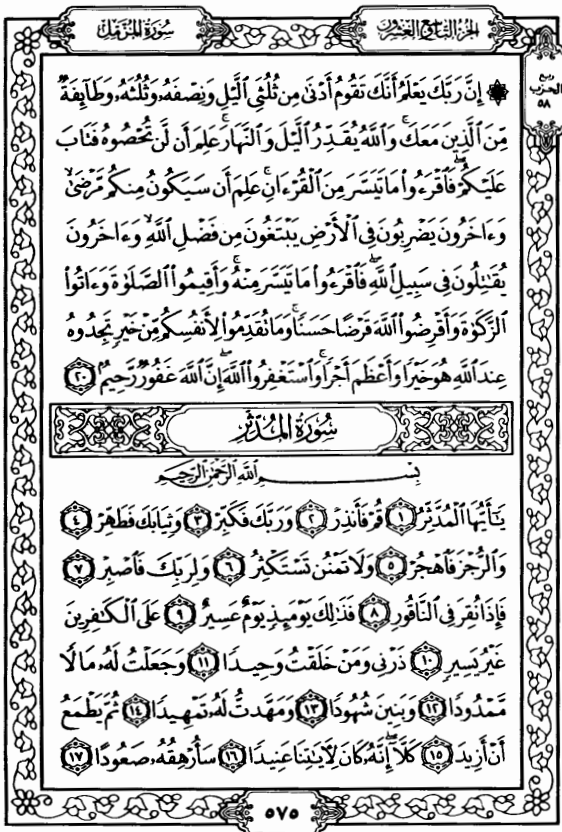 سُورَةُ المُزَّمِّل
الجُزْءُ التَّاسِعُ وَالعِشْرُونَ
ربع
الحزب
٥٨
۞ إِنَّ رَبَّكَ يَعْلَمُ أَنَّكَ تَقُومُ أَدْنَىٰ مِن ثُلُثَيِ ٱلَّيْلِ وَنِصْفَهُۥ وَثُلُثَهُۥ وَطَآئِفَةٌ
مِّنَ ٱلَّذِينَ مَعَكَۚ وَٱللَّهُ يُقَدِّرُ ٱلَّيْلَ وَٱلنَّهَارَۚ عَلِمَ أَن لَّن تُحْصُوهُ فَتَابَ
عَلَيْكُمْۖ فَٱقْرَءُوا۟ مَا تَيَسَّرَ مِنَ ٱلْقُرْءَانِۚ عَلِمَ أَن سَيَكُونُ مِنكُم مَّرْضَىٰۙ
وَءَاخَرُونَ يَضْرِبُونَ فِى ٱلْأَرْضِ يَبْتَغُونَ مِن فَضْلِ ٱللَّهِۙ وَءَاخَرُونَ
يُقَـٰتِلُونَ فِى سَبِيلِ ٱللَّهِۖ فَٱقْرَءُوا۟ مَا تَيَسَّرَ مِنْهُۚ وَأَقِيمُوا۟ ٱلصَّلَوٰةَ وَءَاتُوا۟
ٱلزَّكَوٰةَ وَأَقْرِضُوا۟ ٱللَّهَ قَرْضًا حَسَنًاۚ وَمَا تُقَدِّمُوا۟ لِأَنفُسِكُم مِّنْ خَيْرٍ تَجِدُوهُ
عِندَ ٱللَّهِ هُوَ خَيْرًا وَأَعْظَمَ أَجْرًاۚ وَٱسْتَغْفِرُوا۟ ٱللَّهَۖ إِنَّ ٱللَّهَ غَفُورٌ رَّحِيمٌۢ ٢٠
سُورَةُ المُدَّثِّر
بِسْمِ ٱللَّهِ ٱلرَّحْمَـٰنِ ٱلرَّحِيمِ
يَـٰٓأَيُّهَا ٱلْمُدَّثِّرُ ١ قُمْ فَأَنذِرْ ٢ وَرَبَّكَ فَكَبِّرْ ٣ وَثِيَابَكَ فَطَهِّرْ ٤
وَٱلرُّجْزَ فَٱهْجُرْ ٥ وَلَا تَمْنُن تَسْتَكْثِرُ ٦ وَلِرَبِّكَ فَٱصْبِرْ ٧
فَإِذَا نُقِرَ فِى ٱلنَّاقُورِ ٨ فَذَٰلِكَ يَوْمَئِذٍ يَوْمٌ عَسِيرٌ ٩ عَلَى ٱلْكَـٰفِرِينَ
غَيْرُ يَسِيرٍ ١٠ ذَرْنِى وَمَنْ خَلَقْتُ وَحِيدًا ١١ وَجَعَلْتُ لَهُۥ مَالًا
مَّمْدُودًا ١٢ وَبَنِينَ شُهُودًا ١٣ وَمَهَّدتُّ لَهُۥ تَمْهِيدًا ١٤ ثُمَّ يَطْمَعُ
أَنْ أَزِيدَ ١٥ كَلَّآۖ إِنَّهُۥ كَانَ لِـَٔايَـٰتِنَا عَنِيدًا ١٦ سَأُرْهِقُهُۥ صَعُودًا ١٧
٥٧٥